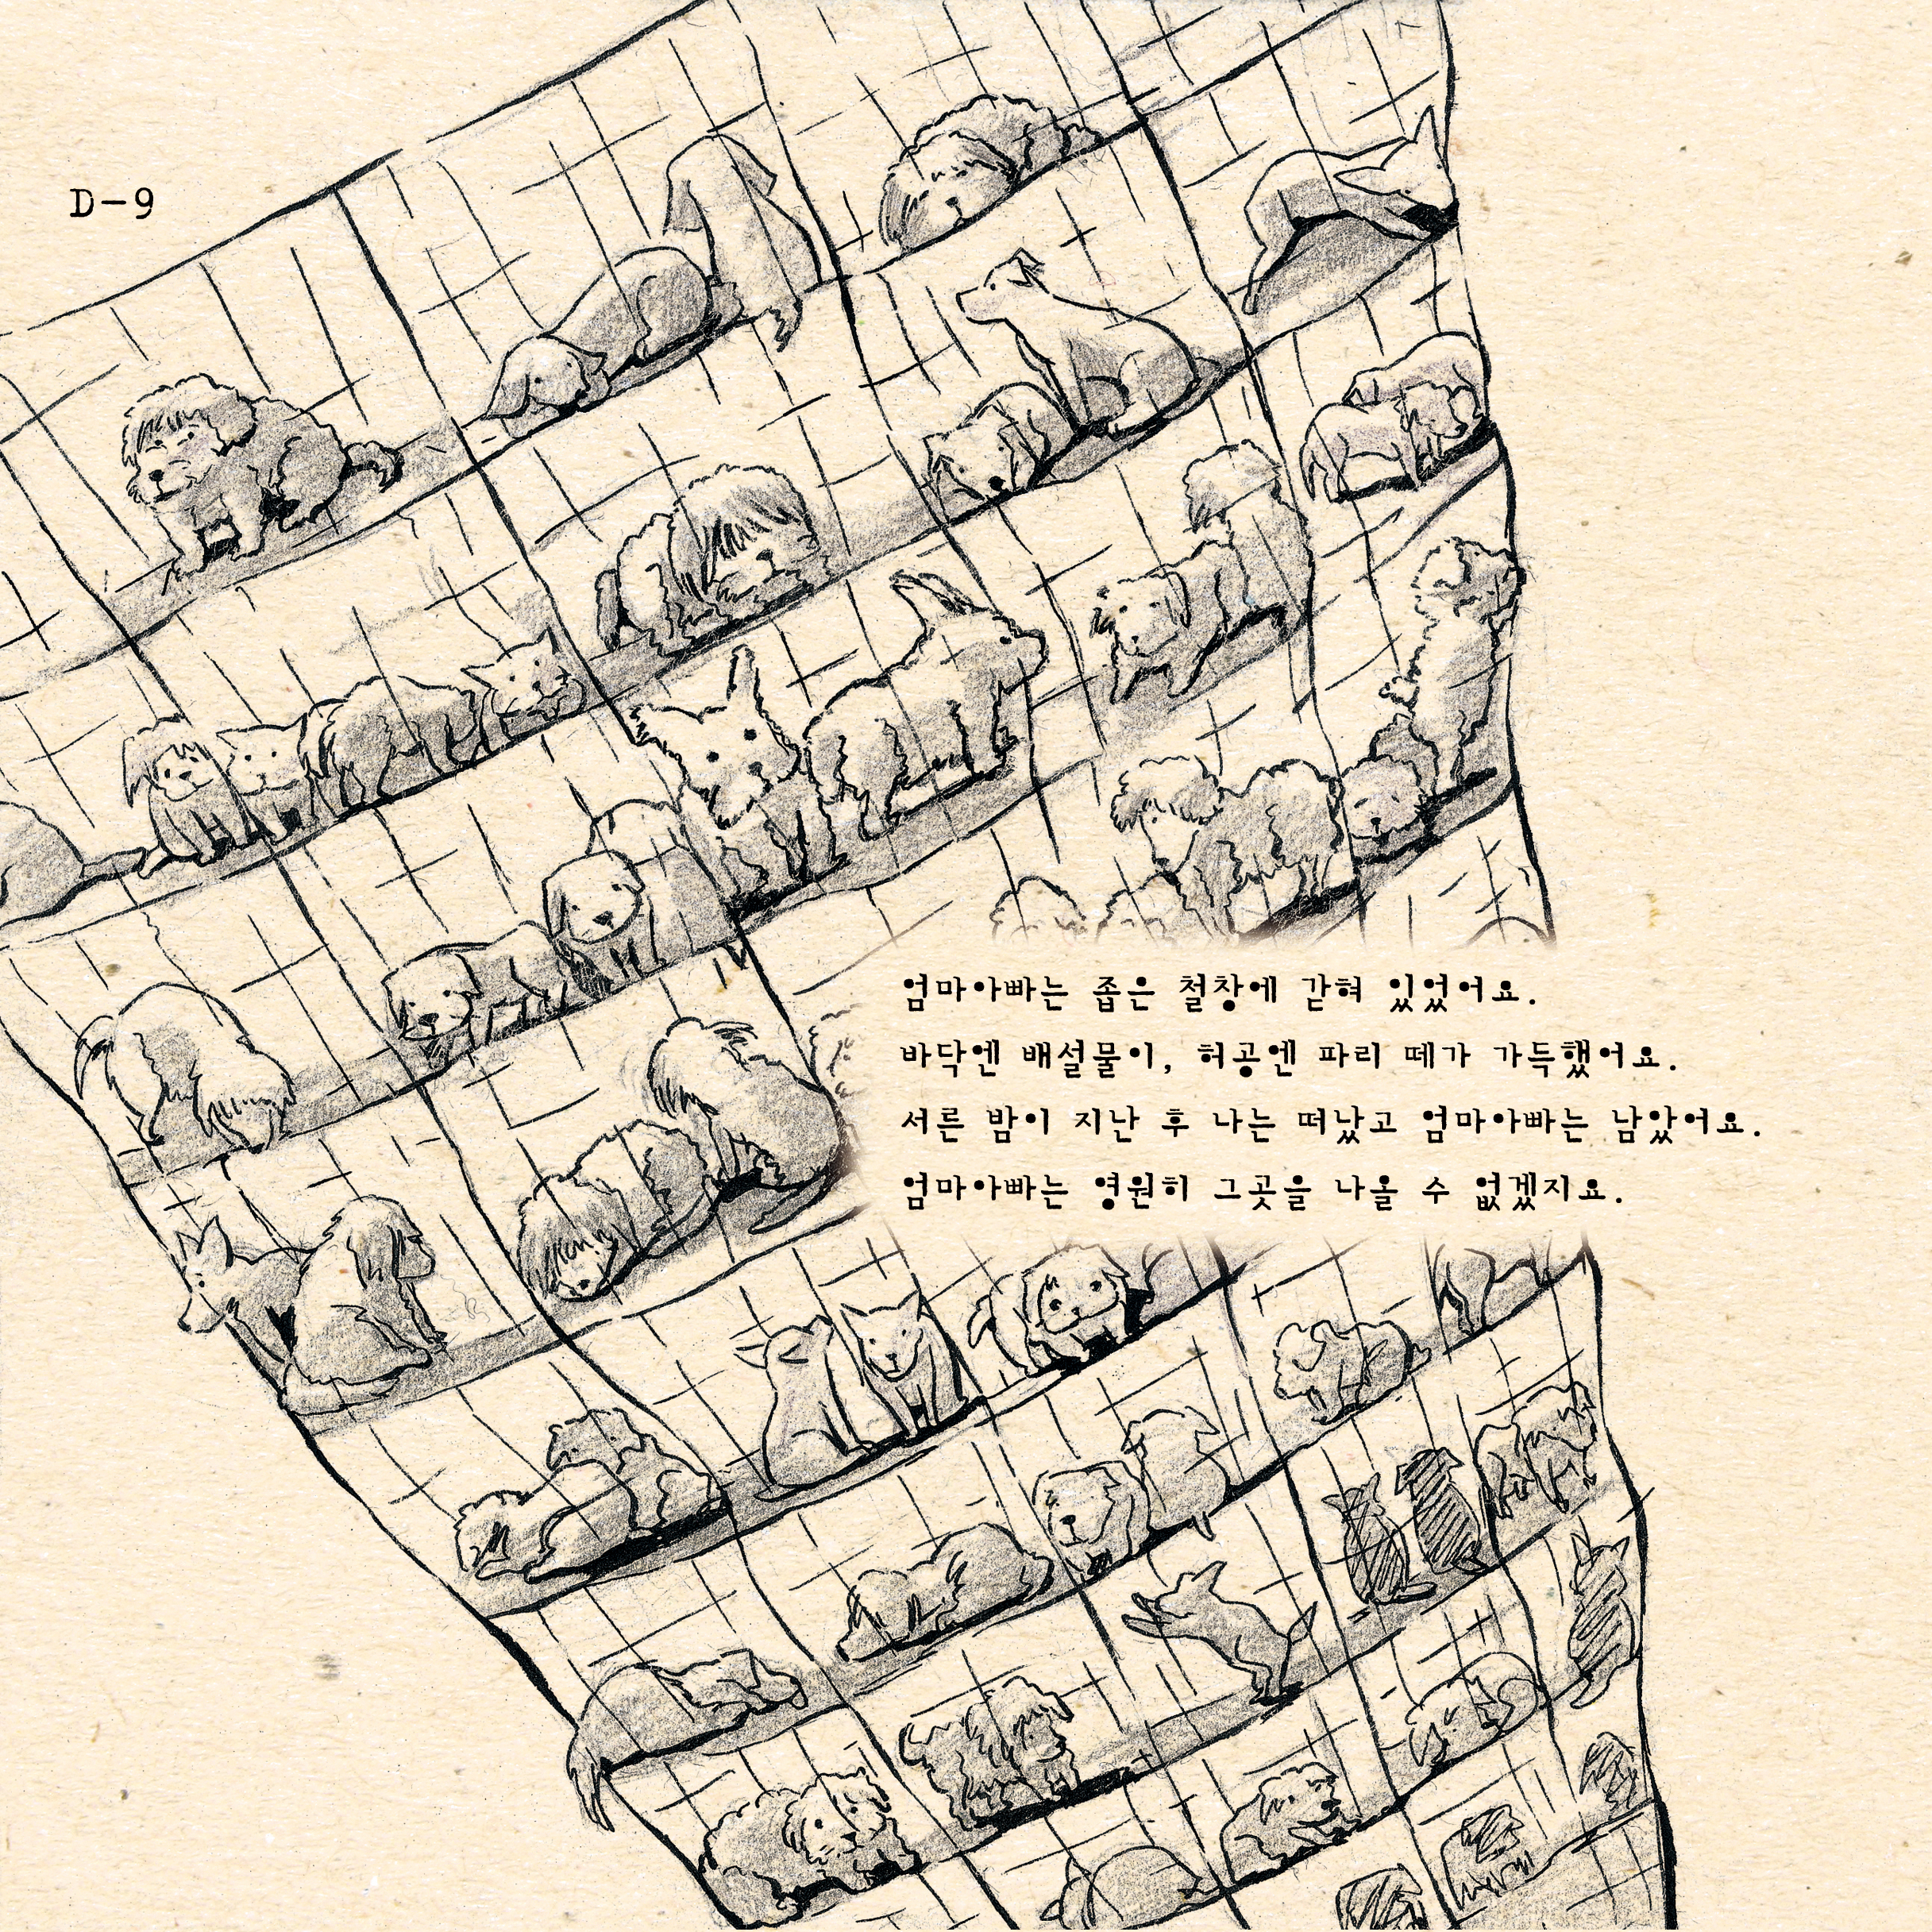 D-9
엄마아빠는 좁은 철창에 갇혀 있었어요.
바닥엔 배설물이, 허공엔 파리 떼가 가득했어요.
서른 밤이 지난 후 나는 떠났고 엄마아빠는 남았어요.
엄마아빠는 영원히 그곳을 나올 수 없겠지요.